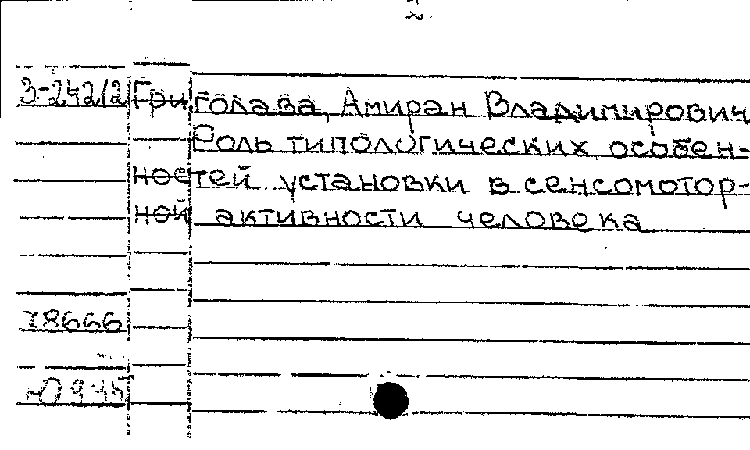 3-242/2 Григолава, Амиран Владимирович
Роль типологических особен-
ностей установки в сенсомотор-
ной активности человека
78666